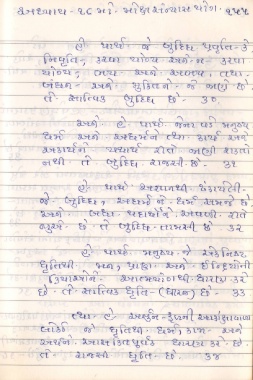 અધ્યાય - ૧૮ મો - મોક્ષસંન્યાસ યોગ. ૨૫૫
હે પાર્થ જે બુદ્ધિ પ્રવૃત્તિ - કે
નિવૃત્તિ, કરવા યોગ્ય અને ન કરવા
યોગ્ય, ભય અને અભય તથા
બંધન અને મુક્તિને જે જાણે છે
તે સાત્વિક બુદ્ધિ છે - ૩૦
અને હે પાર્થ જેના વડે મનુષ્ય
ધર્મ અને અધર્મને તથા કાર્ય અને
અકાર્યને યથાર્થ રીતે જાણી શકતો
નથી તે બુદ્ધિ રાજસી છે - ૩૧
હે પાર્થ અજ્ઞાનથી ઘેરાયેલી
જે બુદ્ધિ, અધર્મને ધર્મ સમજે છે
અને બધા પદાર્થોને અવળી રીતે
જુએ છે તે બુદ્ધિ તામસી છે ૩૨
હે પાર્થ મનુષ્ય જે એકનિષ્ઠ
ધૃતિથી મન, પ્રાણ અને ઈન્દ્રિયોની
ક્રિયાઓને ધારણ કરે
છે - તે સાત્વિક ધૃતિ - (ધારણ) છે - ૩૩
તથા હે અર્જુન - ફળની આકાંક્ષાવાળા
લોકો જે ધૃતિથી ધર્મ, કામ અને
અર્થને આસક્તિપૂર્વક ધારણ કરે છે
તે રાજસી ધૃતિ છે. ૩૪